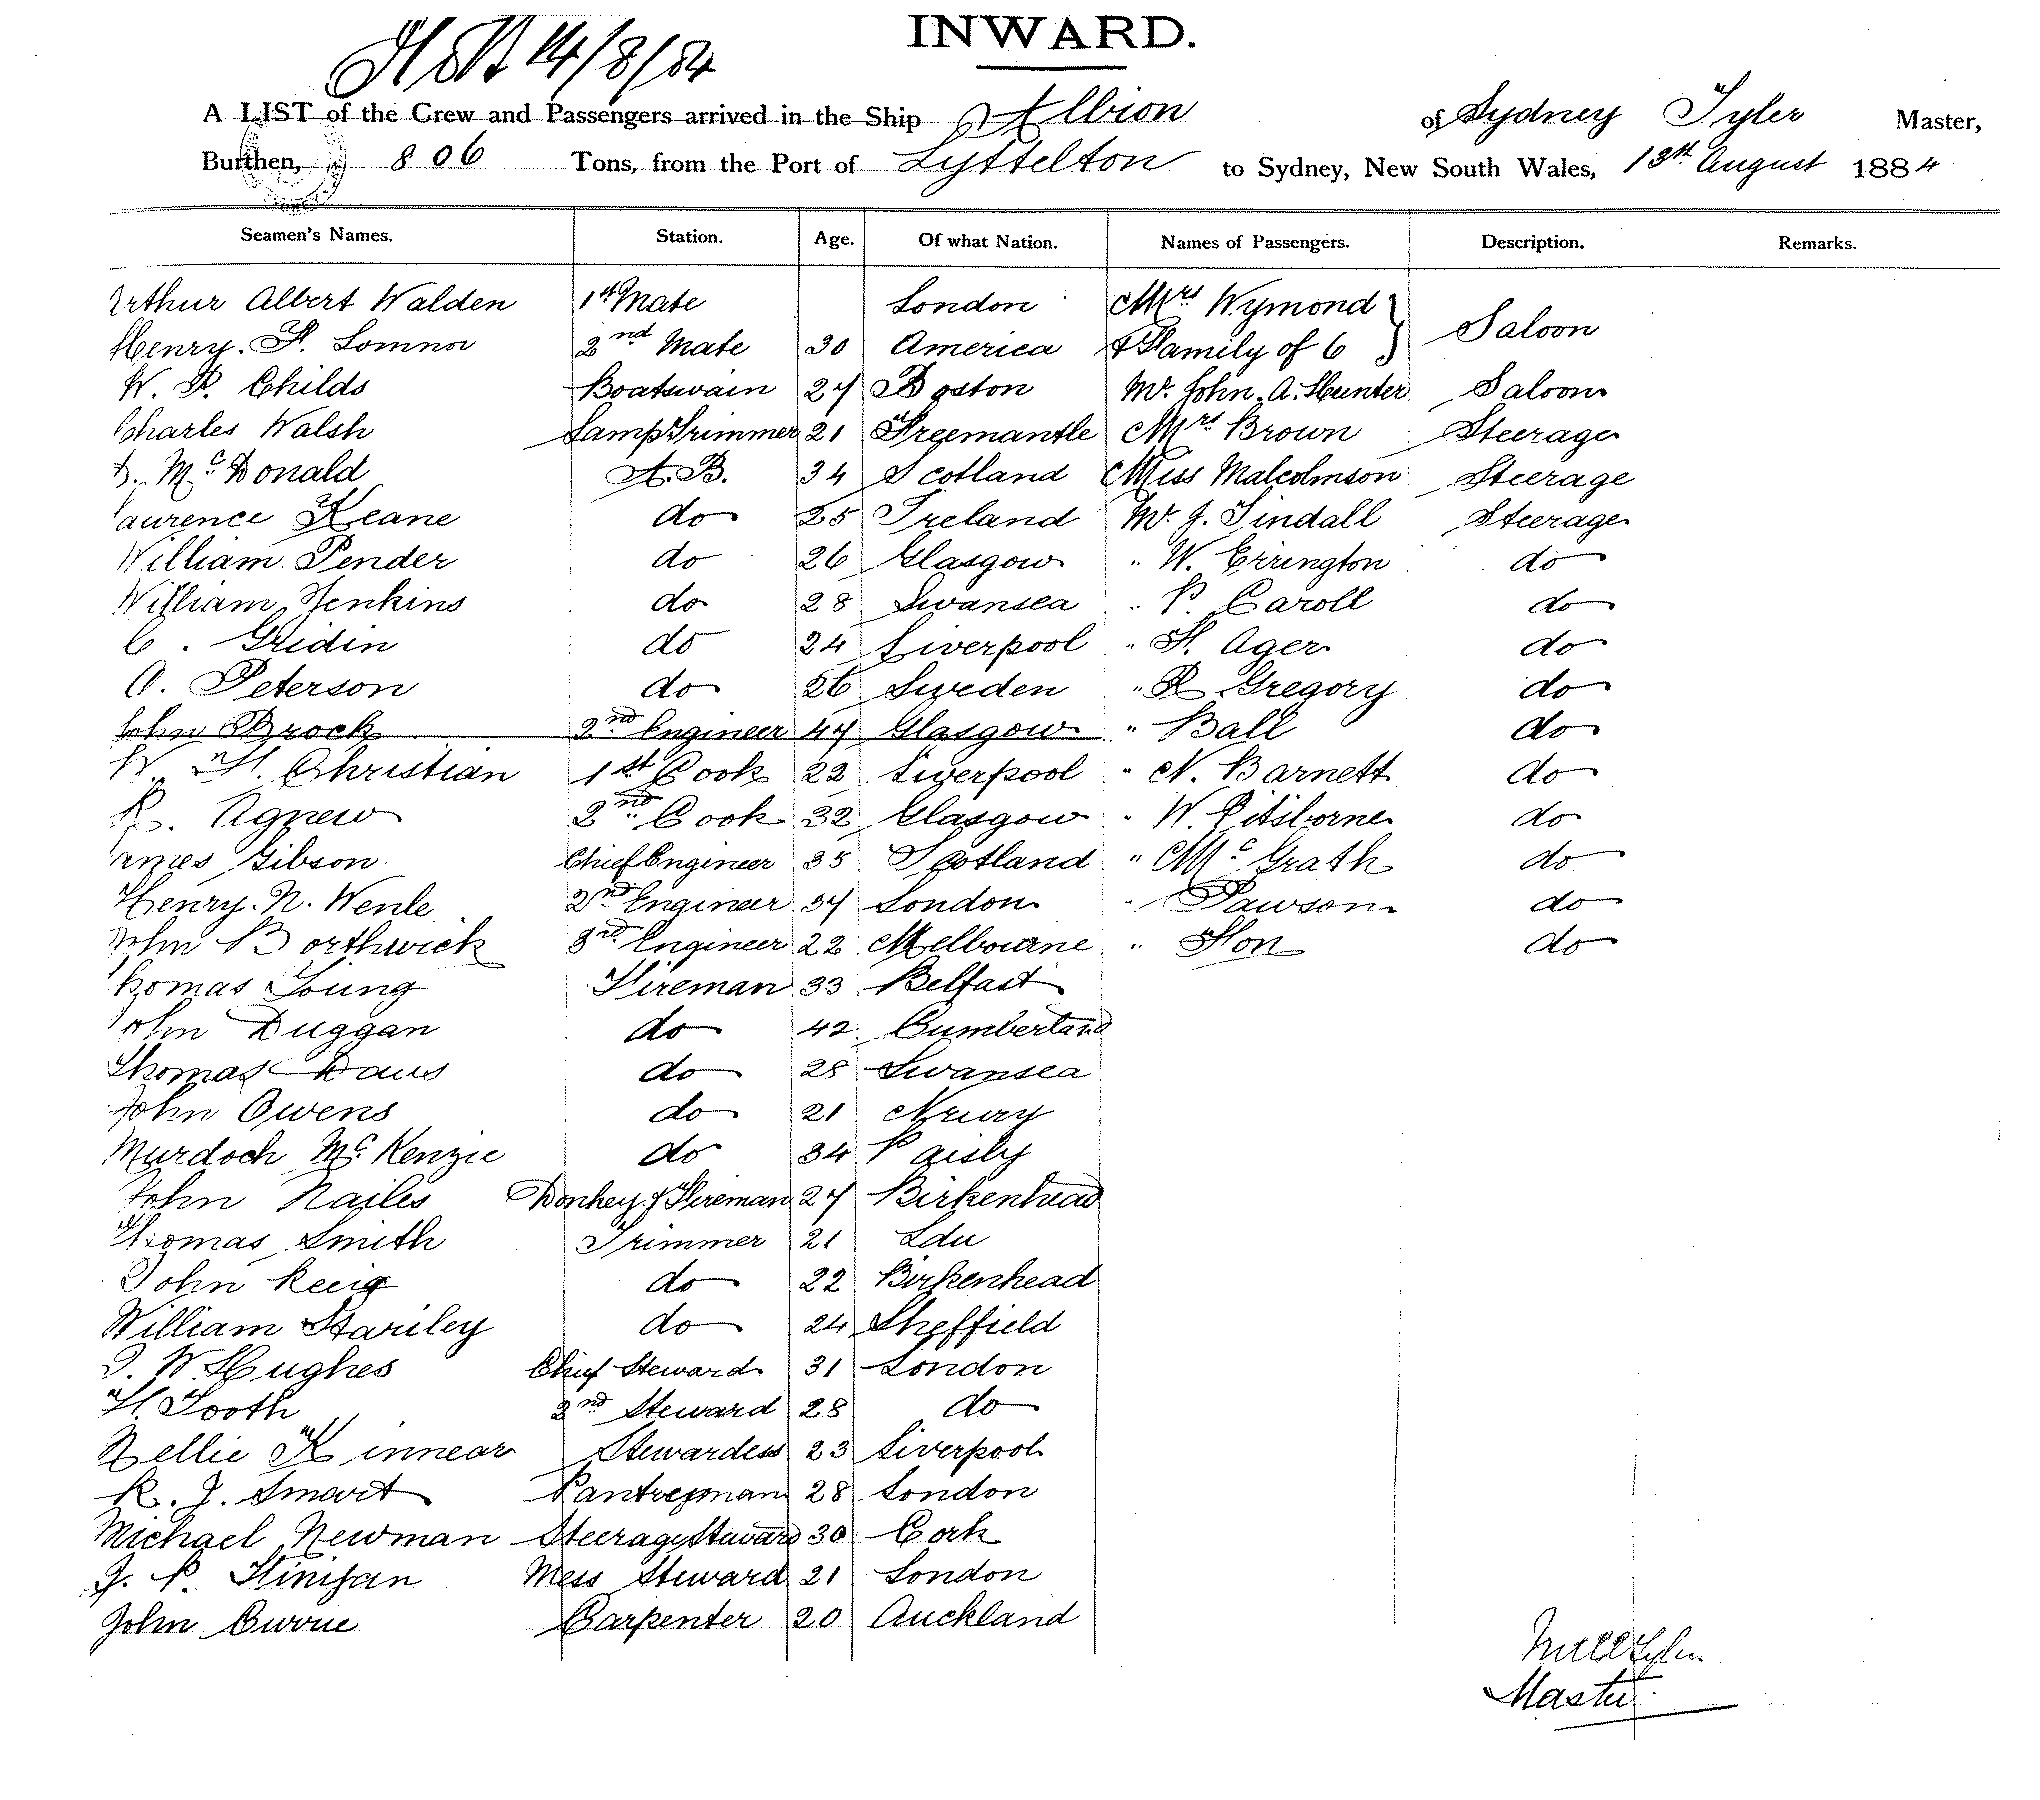 INWARD.
14/8/84
A LIST of the Crew and Passengers arrived in the Ship Albion of Sydney Tyler Master,
Burthen, 806 Tons, from the Port of Lyttelton to Sydney, New South Wales, 13th August 1884
Seamen's Names. Station. Age. Of what Nation. Names of Passengers. Description. Remarks.
Arthur Albert Walden 1st Mate London Mrs Wymond
Henry. 2nd Mate 30 America & Family of 6 Saloon
W. Childs Boatswain 27 Boston Mr. John. A. Hunter Saloon
Charles Walsh Lamp Trimmer 21 Freemantle Mrs Brown Steerage
D. Mc Donald A.B. 34 Scotland Miss Malcolmson Steerage
Laurence Keane do 25 Ireland Mr. J. Tindall Steerage
William Pender do 26 Glasgow " W. Errington do
William Jenkins do 28 Swansea " P. Caroll do
C. Gridin do 24 Liverpool " H. Ager do
O. Peterson do 26 Sweden " R Gregory do
John Brock 2nd Engineer 47 Glasgow " Ball do
W. H. Christian 1st Cook 22 Liverpool " N. Barnett do
R. Agnew 2nd Cook 32 Glasgow " W. do
James Gibson Chief Engineer 35 Scotland " Mc Grath do
Henry. N. Wenle 2nd Engineer 37 London " Pawson do
John Borthwick 3rd Engineer 22 Melbourne " Hon do
Thomas Young Fireman 33 Belfast
John Duggan do 42 Cumberland
Thomas Daus do 28 Swansea
John Owens do 21 Nrury
Murdoch Mc Kenzie do 34 Paisly
John Nailes Donkey & Fireman 27 Birkenhead
Thomas Smith Trimmer 21
John Reig do 22 Birkenhead
William Stariley do 24 Sheffield
J. W Hughes Chief Steward 31 London
H. Tooth 2nd Steward 28 do
Nellie Kinnear Stewardess 23 Liverpool
R. J. Smart Pantreyman 28 London
Michael Newman Steerage Steward 30 Cork
J. P. Mess Steward 21 London
John Carpenter 20 Auckland
Tyler
Master